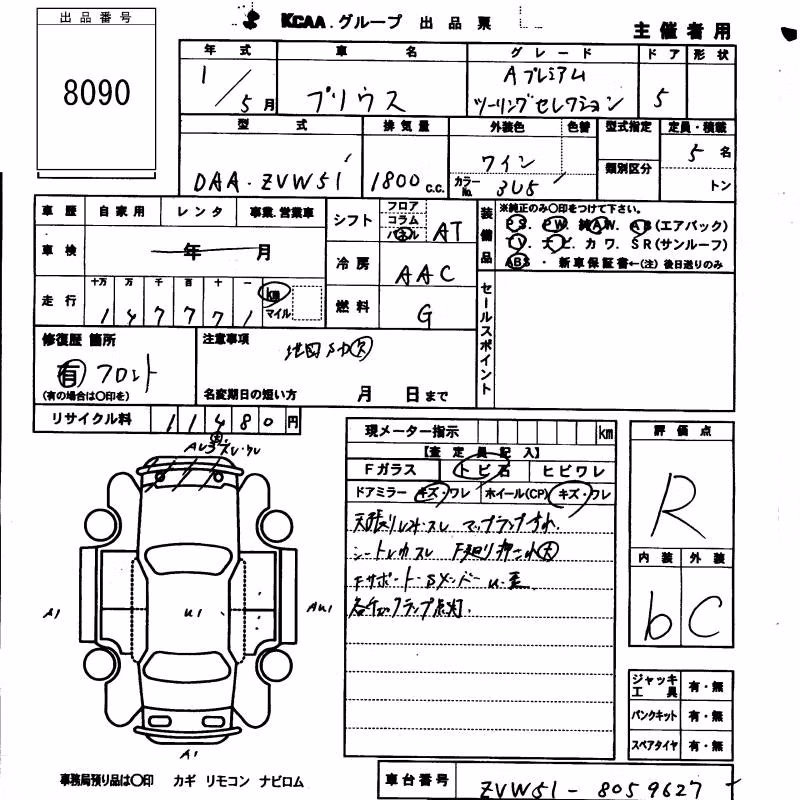 出品番号
8090
KCAA.グループ 出品票
主催者用
年式 車名 グレード ドア 形状
1/5月 プリウス Aプレミアム ツーリングセレクション 5
型式 排気量 外装色 色替 型式指定 定員・積載
類別区分
DAA-ZVW51 1800c.c. ワイン カラーNo. 3U5 5名
トン
車歴 自家用 レンタ 事業.営業車
車検 年 月
走行 十万 万 千 百 十 一
147771 km マイル
シフト フロア コラム パネル AT
冷房 AAC
燃料 G
装備品 ※純正のみ〇印をつけて下さい。
PS. PW. 純AW. AB(エアバック)
TV. ナビ. カワ. SR(サンルーフ)
ABS ・ 新車保証書←(注) 後日送りのみ
セールスポイント
修復歴 箇所
有 フロント
(有の場合は〇印を)
注意事項
地図SD欠
名変期日の短い方 月 日まで
リサイクル料 11480円
現メーター指示 km
【査定員記入】
Fガラス トビ石 ヒビワレ
ドアミラー キズ・ワレ ホイール(CP) キズ・ワレ
天張り マップランプ
シート F廻り
Fサポート・Sメンバー
ランプ点灯.
評価点
R
内装 外装
b C
A1 U1 AU1
A1
ジャッキ工具 有・無
パンクキット 有・無
スペアタイヤ 有・無
事務局預り品は〇印 カギ リモコン ナビロム
車台番号 ZVW51-8059627